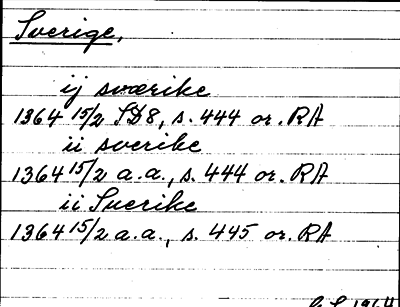 Sverige,
ij swerike
1364 15/2 SD8, s. 444 or. RA
ii sverike
1364 15/2 a.a., s. 444 or. RA
ii Suerike
1364 15/2 a.a., s. 445 or. RA
1964